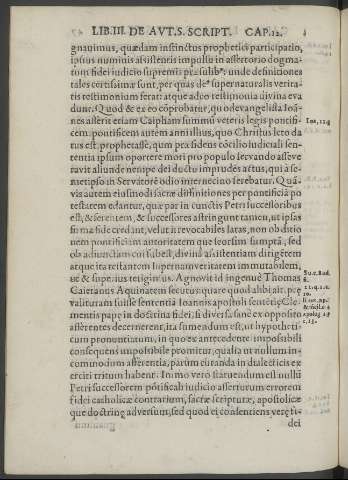 LIB. III. DE AVT. S. SCRIPT. CAP. 12.
gnauimus, quædam instinctus prophetici participatio,
ipsius numinis assistentis impulsu in assertorio dogma-
tum fidei iudicio supremis præsulibꝰ: vnde definitiones
tales certissimæ sunt, per quas deꝰ supernaturalis verita-
tis testimonium ferat: atque adeo testimonia diuina eua
dunt. Quod & ex eo cōprobatur, quod euangelista Ioā-
nes asserit etiam Caipham summū veteris legis pontifi-
cem: pontificem autem anni illius, quo Christus leto da
tus est, prophetasse, quum præsidens cōcilio iudiciali sen-
tentia ipsum oportere mori pro populo seruando asseue
rauit
aliunde nempe dei ductu imprudēs actus, qui à se-
metipso in Seruatorē odio internecino ferebatur. Quā-
uis autem eiusmodi sacræ diffinitiones per pontificia po
testatem edantur, quæ par in cunctis Petri successoribus
est, & ferentem, & successores astringunt tamen, ut ipsas
firma fide credant, velut irreuocabiles latas, non ob ditio
nem pontificiam autoritatem que seorsim sumptā, sed
ob adiunctam
diuini assistentiam dirigētem
atque ita testantem supernam veritatem immutabilem,
ue & superius tetigimus. Agnouit id ingenuè Thomas
Caietanus Aquinatem secutus quare quod alibi ait, præ
valituram fuisse sententiā Ioannis apostoli sentētię Cle-
mentis papę in doctrina fidei, si diuersa sane ex opposito
asserentes decernerent, ita sumendum est, ut hypotheti-
cum pronuntiatum, in quo ex antecedente impossibili
consequens impossibile promitur, qualia ut nullum in-
commodum afferentia, parūm curanda in dialecticis ex
erciti tritum habent. Immo vero statuendum est nulli
Petri successorem pōtificali iudicio asserturum errorem
fidei catholicæ contrarium, sacræ scripturæ, apostolicæ
que doctrinę aduersum, sed quod ei consentiens verę ti-
dei
Ioa. 11. g